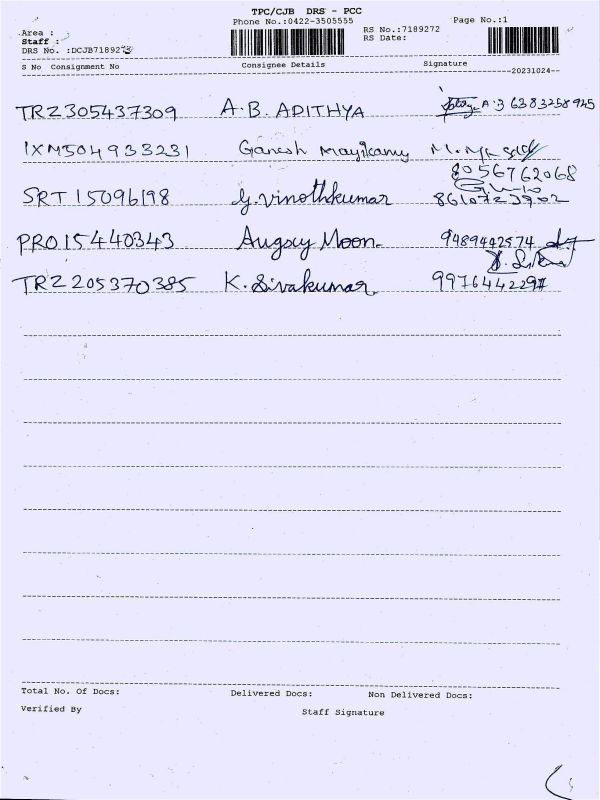 TPC/CJB DRS - PCC
Phone No.:0422-3505555 Page No.:1
Area : RS No.:7189272
Staff : RS Date:
DRS No. :DCJB7189272
S No Consignment No Consignee Details Signature
20231024
TRZ305437309 A.B. ADITHYA A.B 6383258925
IXM504933231 Ganesh
8056762068
SRT15096198 G.Vinothkumar
8610723902
PRO15440343 Augscy Moon. 9489442574
TRZ205370385 K. Sivakumar
9976442297
Total No. Of Docs: Delivered Docs: Non Delivered Docs:
Verified By Staff Signature